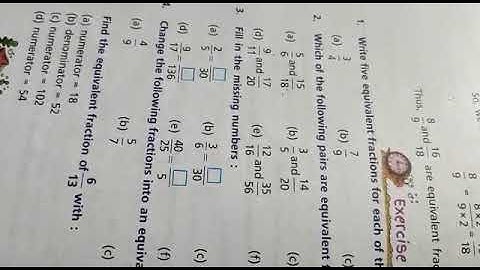 8/9 = 8×2/9×2 = 18
Thus, 8/9 and 16/18 are equivalent frac
Exercise
1. Write five equivalent fractions for each of th
(a) 3/4 (b) 7/9 (c)
2. Which of the following pairs are equivalent f
(a) 5/6 and 15/18 (b) 3/5 and 14/20 (c)
(d) 9/11 and 17/20 (e) 12/16 and 35/56 (f)
3. Fill in the missing numbers :
(a) 2/5 = □/30 (b) 3/6 = □/30 (c)
(d) 9/17 = □/136 (e) 40/25 = □/5 (f)
Change the following fractions into an equiva
(a) 4/9 (b) 5/7 (c)
Find the equivalent fraction of 6/13 with :
(a) numerator = 18
(b) denominator = 52
(c) numerator = 102
(d) numerator = 54